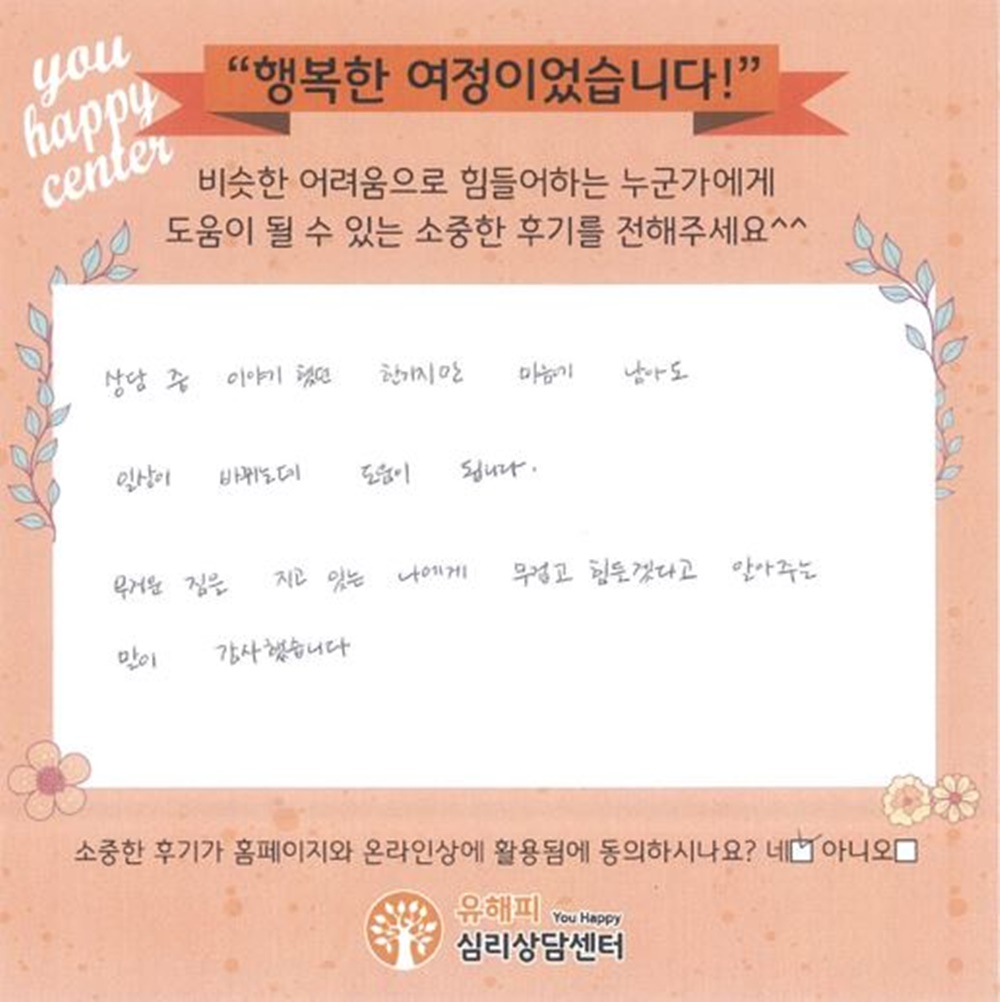 you
happy
center
“행복한 여정이었습니다!”
비슷한 어려움으로 힘들어하는 누군가에게
도움이 될 수 있는 소중한 후기를 전해주세요^^
상담 중 이야기 했던 한가지만 마음에 남아도
일상이 바뀌는데 도움이 됩니다.
무거운 짐을 지고 있는 나에게 무겁고 힘들겠다고 알아주는
말이 감사했습니다
소중한 후기가 홈페이지와 온라인상에 활용됨에 동의하시나요? 네☑ 아니오☐
유해피 You Happy
심리상담센터